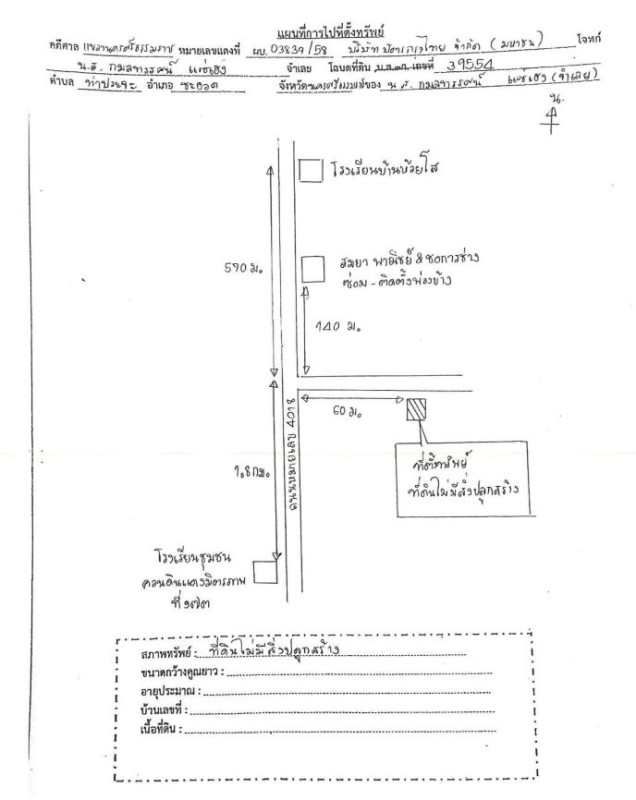 แผนที่การไปที่ตั้งทรัพย์
คดีศาล แขวงนครศรีธรรมราช หมายเลขแดงที่ ผบ.03839/58 บริษัท บัตรกรุงไทย จำกัด (มหาชน) โจทก์
น.ส. กมลวรรณ์ แซ่เฮง จำเลย โฉนดที่ดิน น.ส.๓ก. เลขที่ 39554
ตำบล ท่าประจะ อำเภอ ชะอวด จังหวัดนครศรีธรรมราชของ น.ส. กมลวรรณ์ แซ่เฮง (จำเลย)
น.
โรงเรียนบ้านห้วยโส
590 ม.
พาณิชย์ & ชอการช่าง
ซ่อม - ติดตั้ง
140 ม.
60 ม.
ถนนหมายเลข 4018
ที่ตั้งทรัพย์
ที่ดินไม่มีสิ่งปลูกสร้าง
1.8 กม.
โรงเรียนชุมชน
ควนดินแดงมิตรภาพ
ที่ ๑๗๓
สภาพทรัพย์ : ที่ดินไม่มีสิ่งปลูกสร้าง
ขนาดกว้างคูณยาว :
อายุประมาณ :
บ้านเลขที่ :
เนื้อที่ดิน :